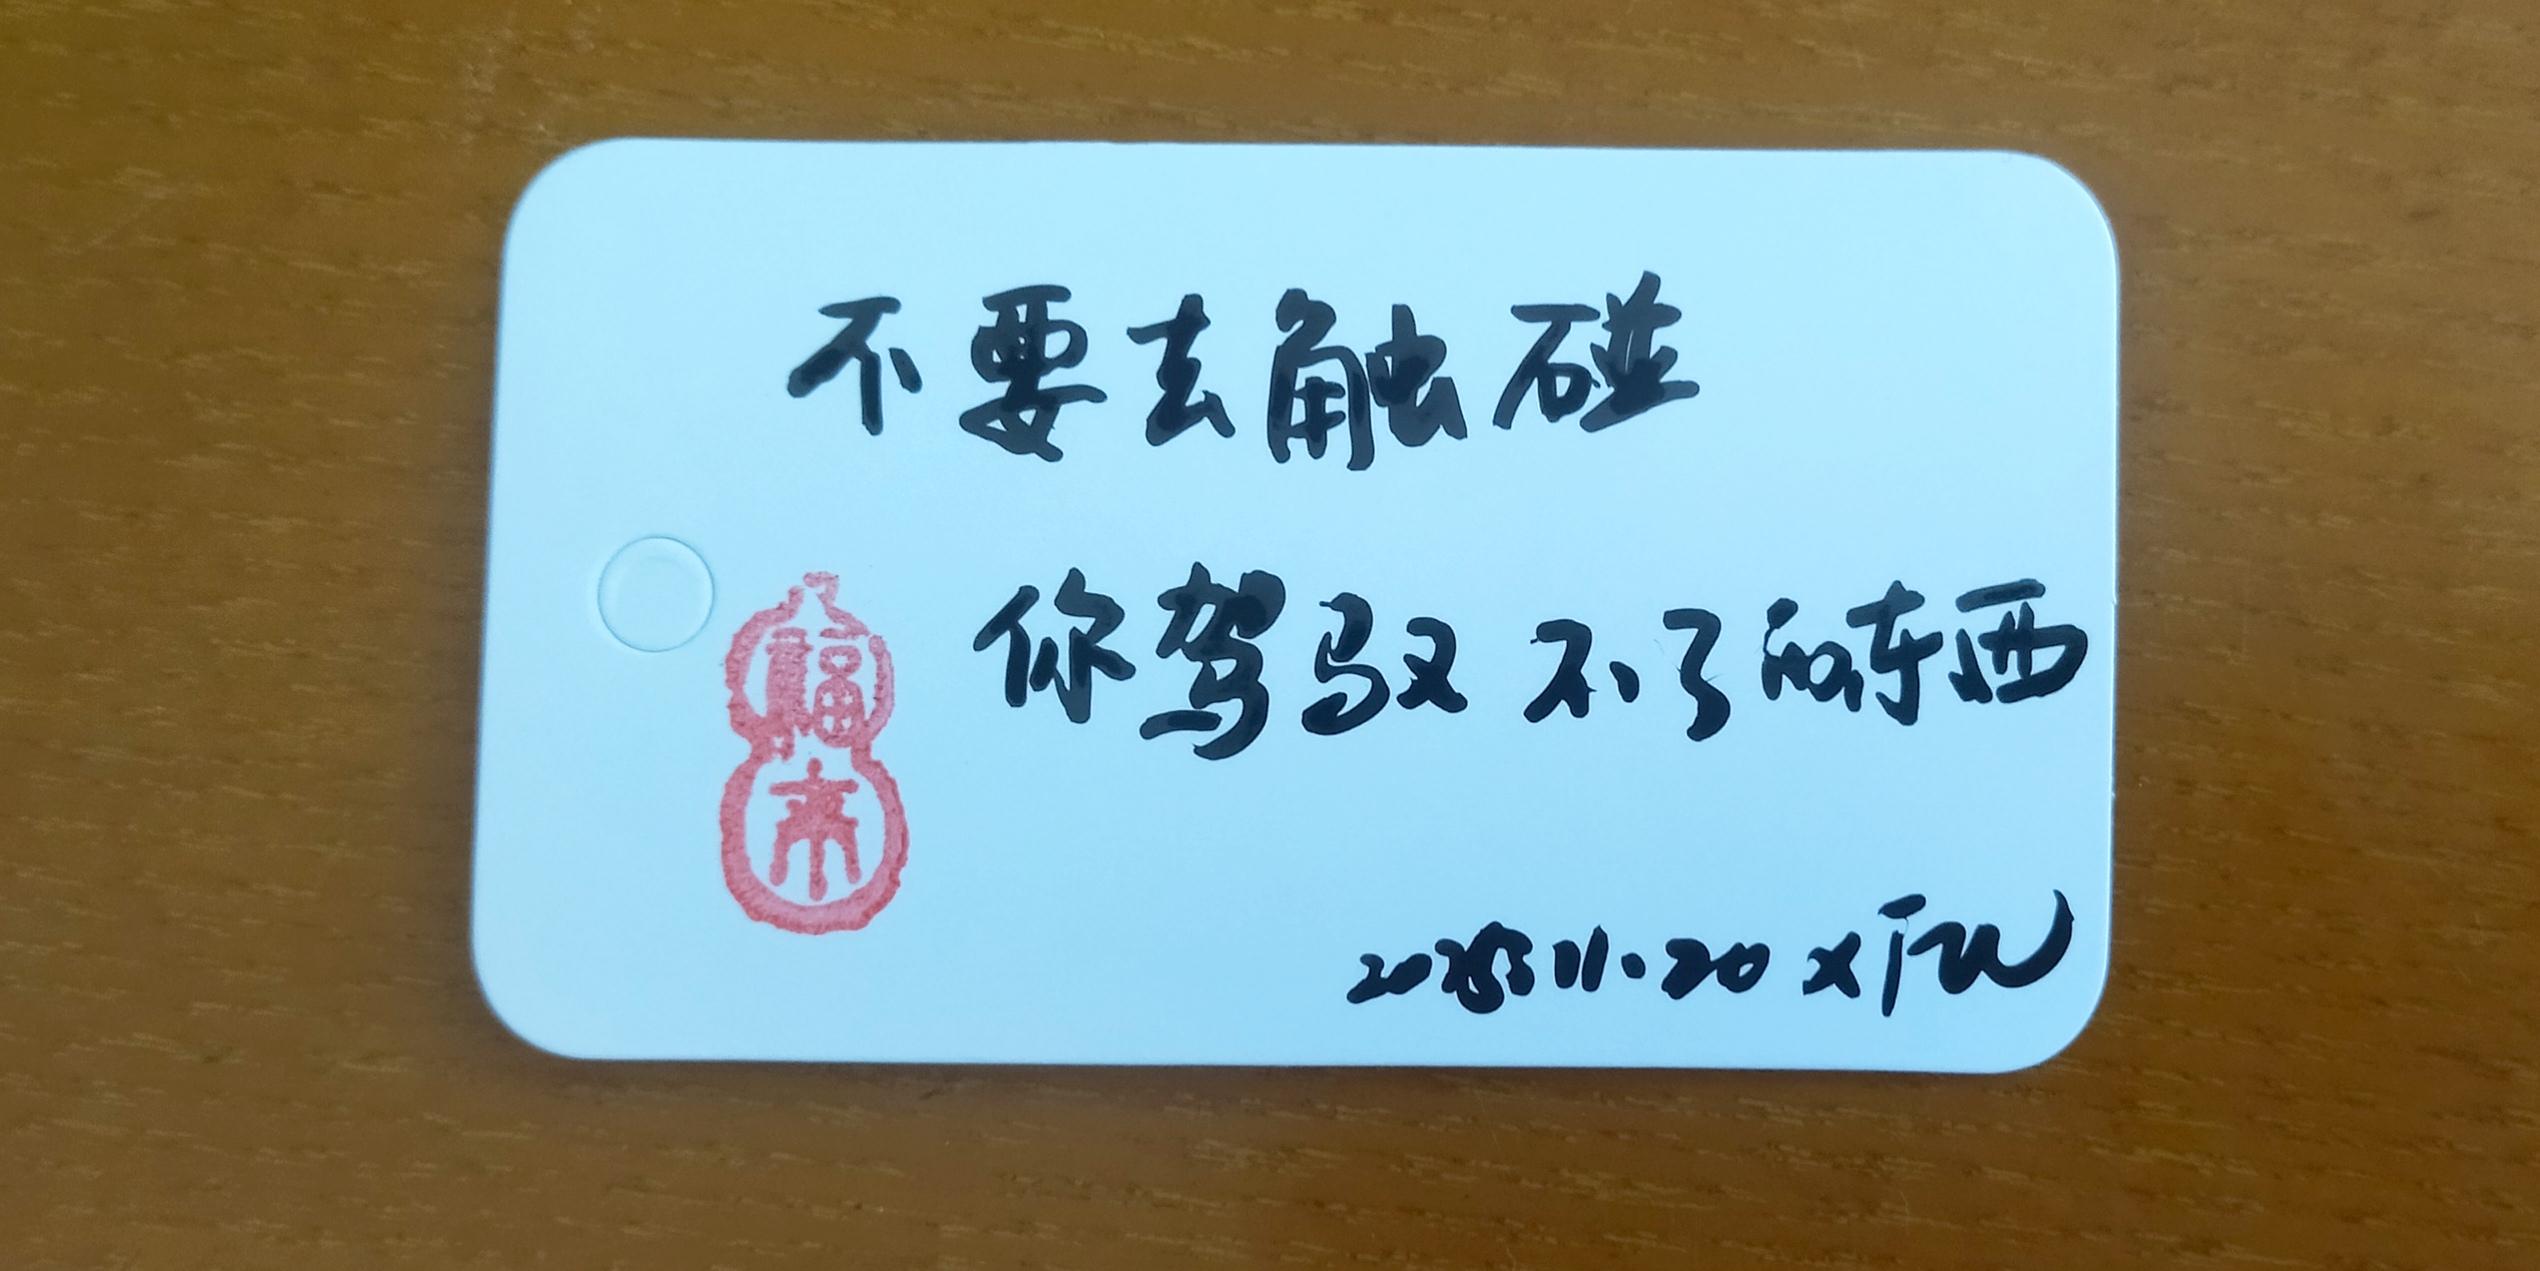 不要去触碰
你驾驭不了的东西
福
11.20